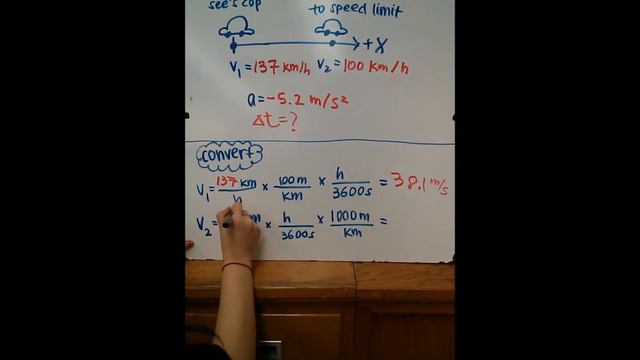 see's cop to speed limit
+X
V₁=137 km/h V₂=100 km/h
a=-5.2 m/s²
Δt=?
convert
V₁= 137 km/h × 100m/km × h/3600s = 38.1 m/s
V₂= m × h/3600s × 1000m/km =